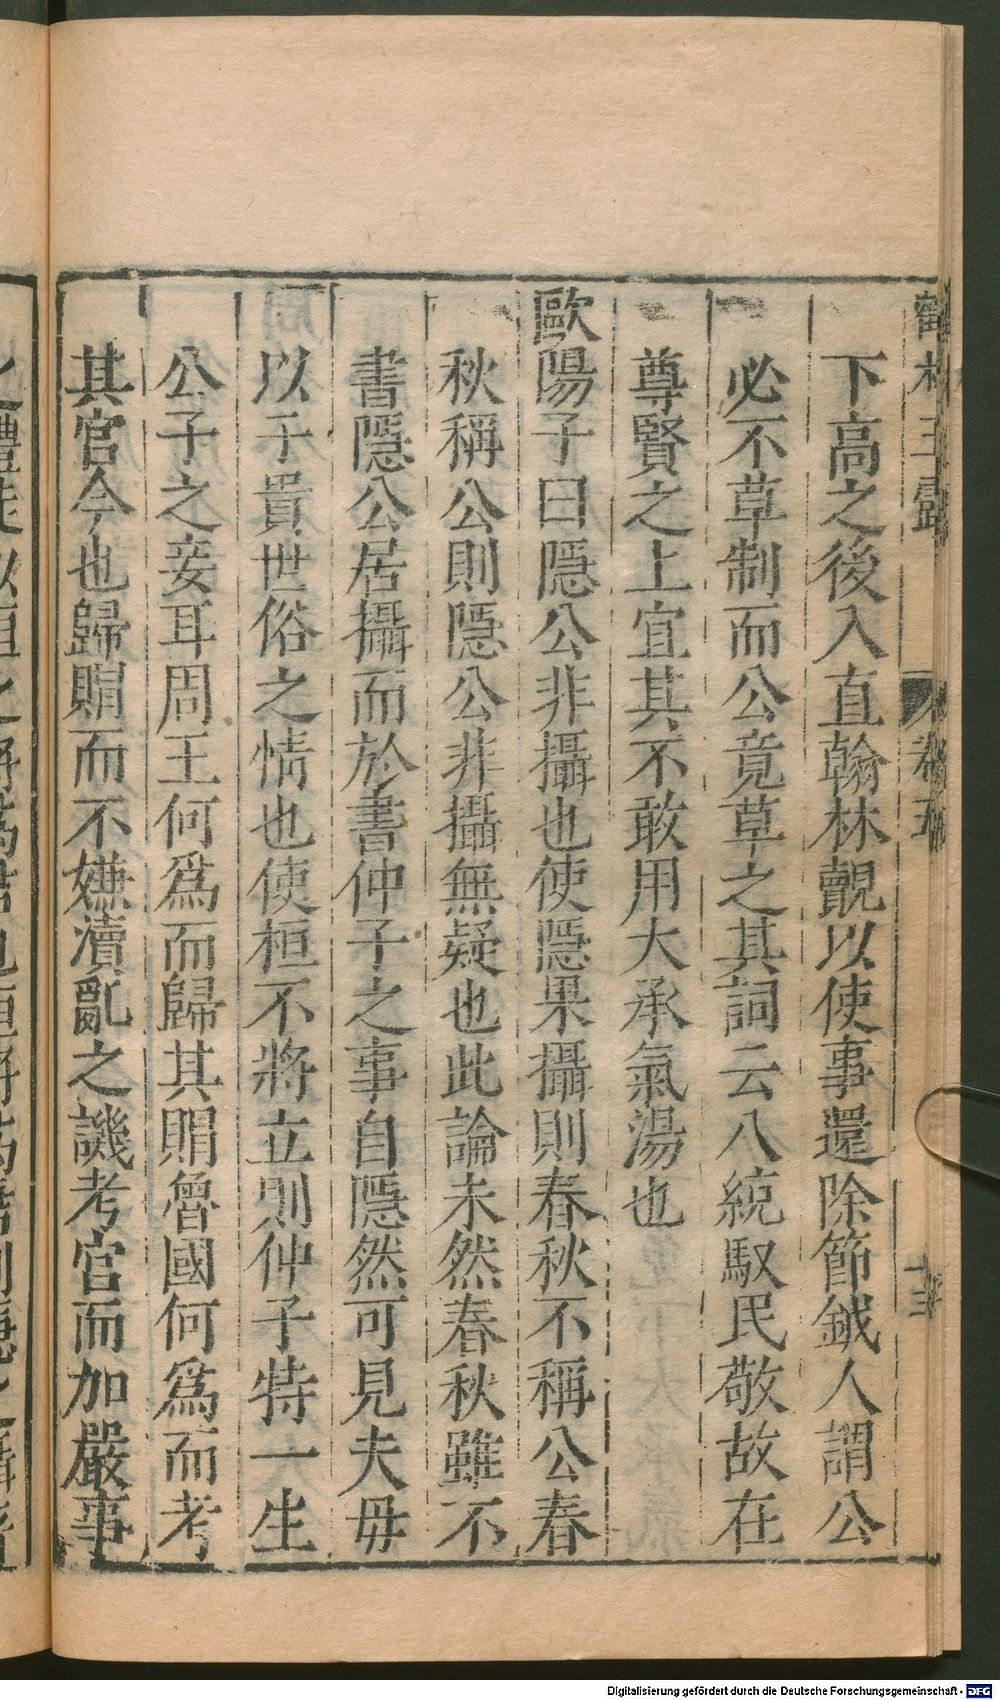 鶴林玉露 卷五 十三
下高之後入直翰林覿以使事還除節鉞人謂公
必不草制而公竟草之其詞云八統馭民敬故在
尊賢之上宜其不敢用大承氣湯也
歐陽子曰隱公非攝也使隱果攝則春秋不稱公春
秋稱公則隱公非攝無疑也此論未然春秋雖不
書隱公居攝而於書仲子之事自隱然可見夫毋
以子貴世俗之情也使桓不將立則仲子特一生
公子之妾耳周王何爲而歸其賵魯國何爲而考
其官今也歸賵而不嫌瀆亂之譏考官而加嚴事
Digitalisierung gefördert durch die Deutsche Forschungsgemeinschaft - DFG